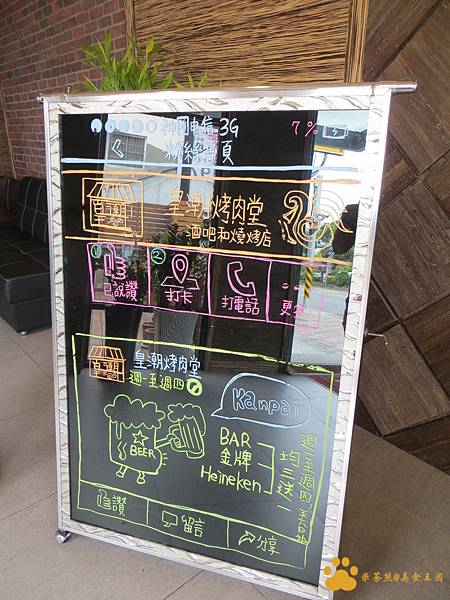 電信 3G 7%
粉絲專頁
皇潮
皇潮烤肉堂
酒吧和燒烤店
① 已說讚
② 打卡
打電話
更多
皇潮
皇潮烤肉堂
週一至週四
Kanpai
BEER
BAR
金牌
Heineken
均三送一
讚
留言
分享
米茶熊@美食王國